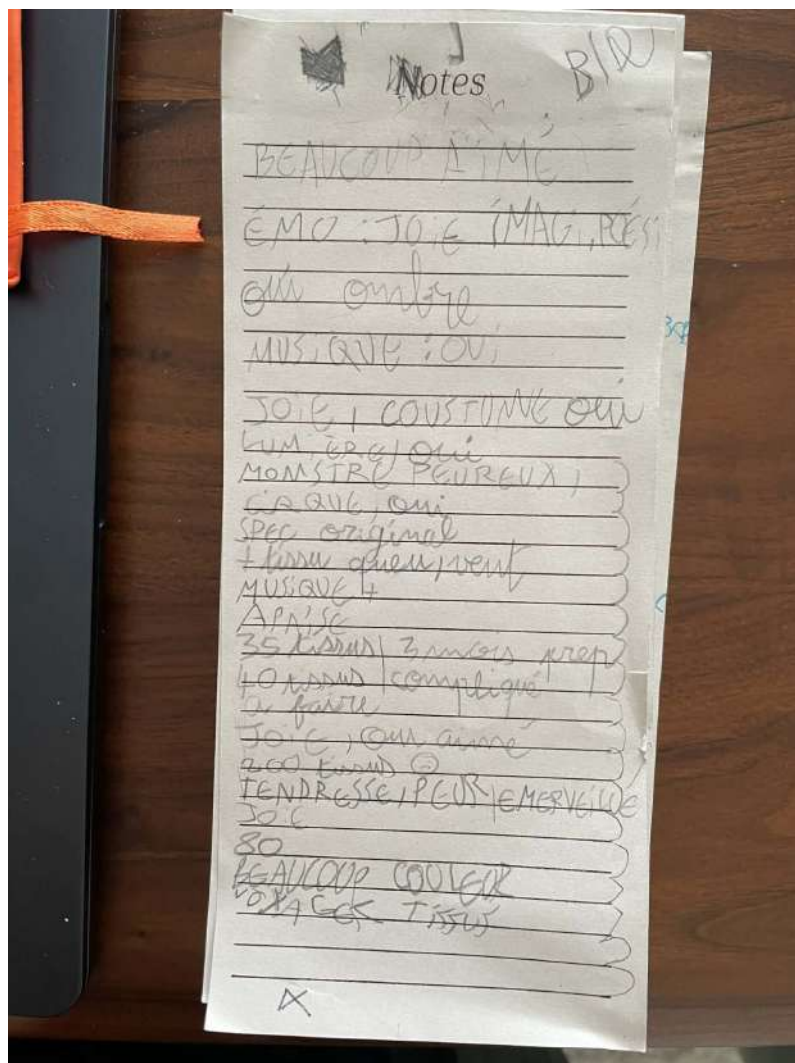 Notes
BEAUCOUP AIMÉ
ÉMO : JOIE IMAGI, POÉSI
oui ombre
MUSIQUE : OUI
JOIE, COUSTUME oui
LUMIÈRE, oui
MONSTRE PEUREUX,
CIRQUE, oui
SPEC original
+ tissu queu, vent
MUSIQUE +
APAISE
35 tissus, 3 mois prep
40 tissus, compliqué
a faire
JOIE, oui aimé
200 tissus
TENDRESSE, PEUR, EMERVEILLE
JOIE
80
BEAUCOUP COULEUR
TISSUS